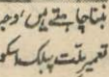 بننا چاہتے ہیں، وجہ
تعمیر ملت پبلک اسکو